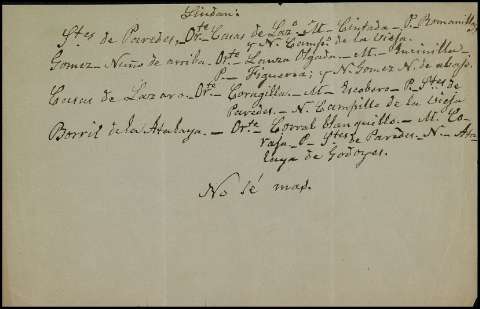 Lindan:
Stes de Paredes. Orte Casas de Lazo. M. Cintada. P. Romanillos
y N. Campo. de la Vieja.
Gomez-Nuño de arriba. Orte Lanza Olgada. M. Encinilla.
P. Figuerra; y N. Gomez N. de abajo.
Casas de Lazaro. Orte. Coragilla. M. Escobero. P. Stes de
Paredes. N. Campillo de la Vieja
Borril de la Atalaya. Orte. Corral blanquillo. M. Co-
raja. P. Stes de Paredes. N. Ata-
laya de Godoyes.
No sé mas.